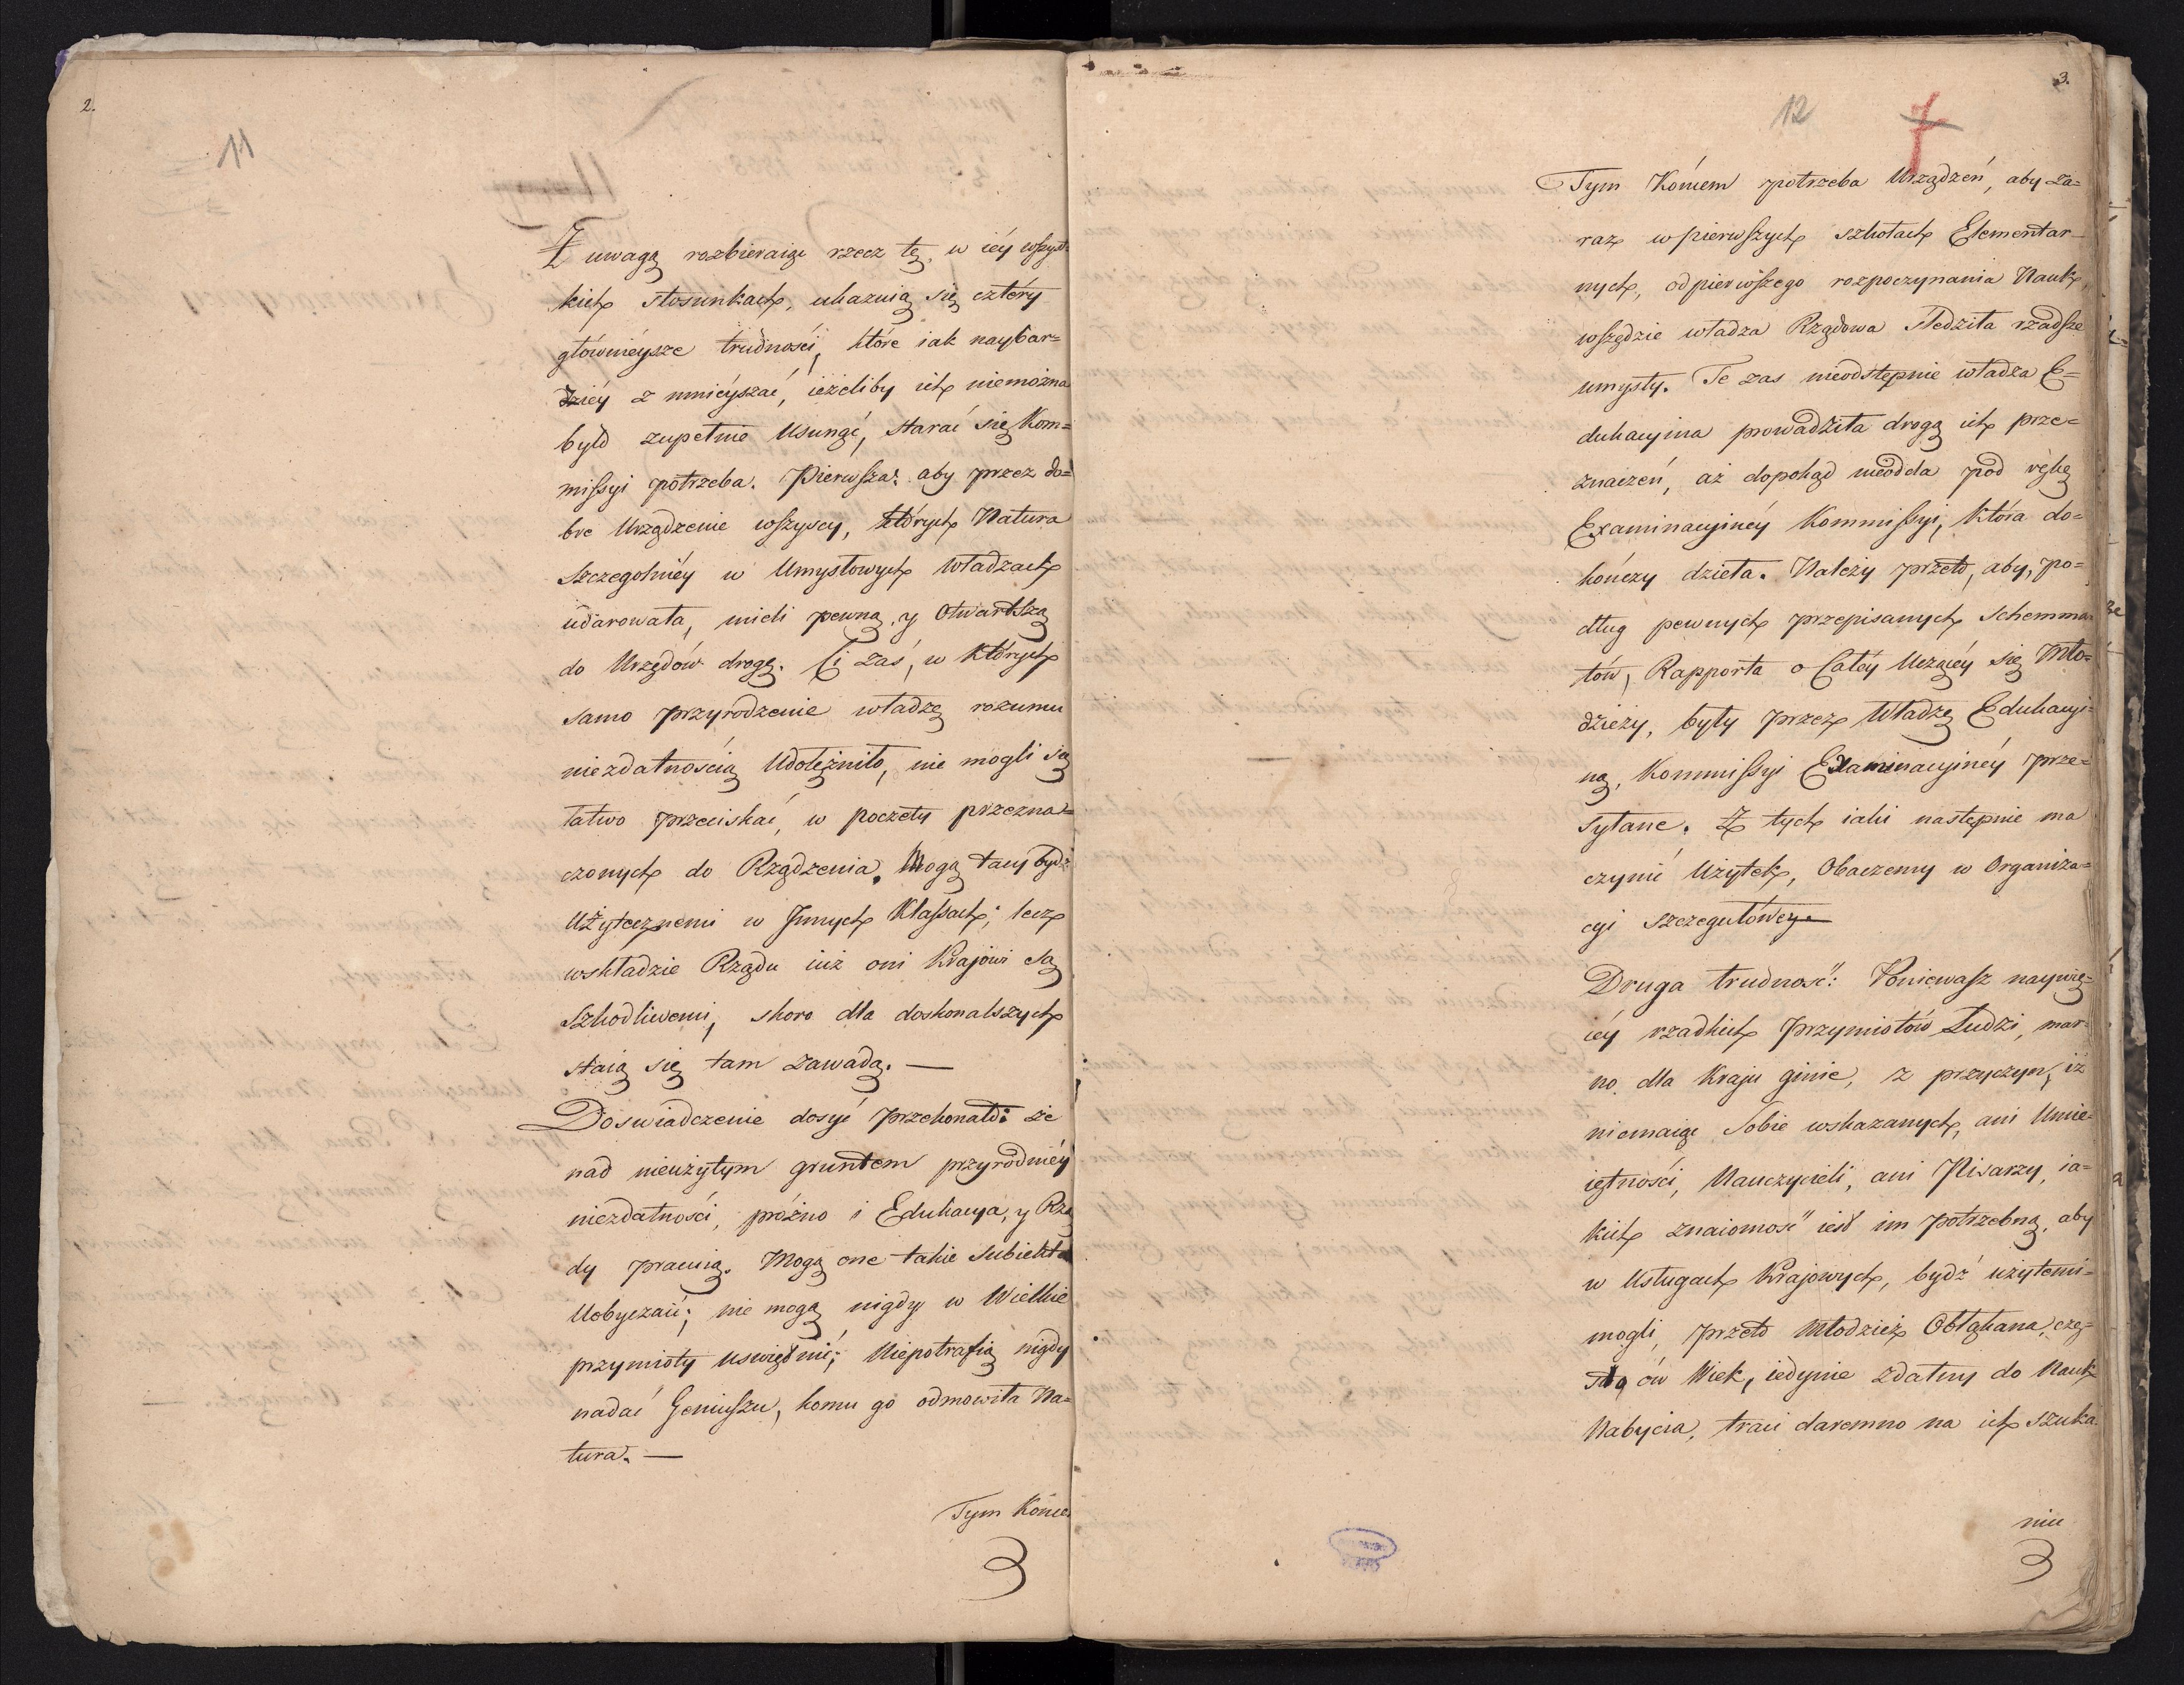 2.
11
Z uwagą rozbieraiąc rzecz tę, w iéy wszyst=
kich stosunkach, ukazuią się cztéry
głównieysze trudności, które iak naybar=
dziéy z mnieyszać, ieżeliby ich niemożna
było zupełnie Usunąć, starać się Kom=
missyi potrzeba. Pierwsza: aby przez do=
bre Urządzenie wszyscy, których Natura
szczegolniéy w Umysłowych Władzach
udarowała, mieli pewną, y Otwartszą
do Urzędów drogę. Ci zaś, w których
samo przyrodzenie władzę rozumu
niezdatnością Udolężniło, nie mogli się
łatwo przeciskać, w poczéty przezna=
czonych do Rządzenia. Mogą tacy bydź
Użytecznemi w Innych Klassach; lecz
wskładzie Rządu iuż oni Krajowi są
Szkodliwemi, skoro dla doskonalszych
staią się tam zawadą. —
Doswiadczenie dosyć przekonało: że
nad nieużytym gruntem przyrodniéy
niezdatności, próżno i Edukacya, y Rzą
dy pracuią. Mogą one takie subiekta
Uobyczaić; nie mogą nigdy w Wielkie
przymioty uswiętnić; Niepotrafią nigdy
nadać Geniuszu, komu go odmowiła Na=
tura. —
Tym Końce
3.
12
Tym Końcem potrzeba Urządzeń, aby za=
raz w pierwszych szkołach Elementar_
nych, od pierwszego rozpoczynania Nauk,
wszędzie władza Rządowa sledziła rzadsze
umysły. Te zas nieodstępnie władza E=
dukacyina prowadziła drogą ich prze=
znaczeń, aż dopokąd nieodda pod rękę
Examinacyinéy Kommissyi, która do=
kończy dzieła. Należy przeto, aby, po=
dług pewnych przepisanych Schemma
tów, Rapporta o Całéy Uczącéy się Mło=
dzieży, były przez Władzę Edukacyi=
ną, Kommissyi Examinacyinéy prze=
syłane. Z tych iaki następnie ma
czynić Użytek, Obaczemy w Organiza=
cyi szczegułowéy. —
Druga trudność: Poniewasz naywię=
céy rzadkich Przymiotów Ludzi, mar
no dla Kraju ginie, z przyczyn, iż
niemaiąc Sobie wskazanych, ani Umie=
iętności, Nauczycieli, ani Pisarzy, ia=
kich znaiomość iest im potrzebną, aby
w Usługach Krajowych, bydź użytemi=
mogli, przeto Młodzież Obłąkana, czę=
sto ów Wiek, iedynie zdatny do Nauk
Nabycia, traci daremno na ich szuka
niu